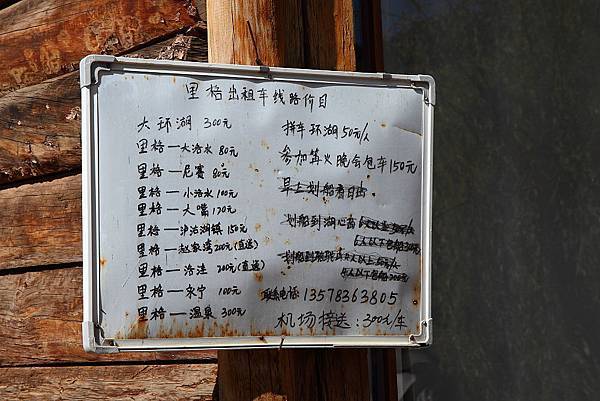 里格出租车线路价目
大环湖 300元
里格—大洛水 80元
里格—尼赛 80元
里格—小洛水 100元
里格—大嘴 120元
里格—泸沽湖镇 150元
里格—赵家湾 200元(直送)
里格—洛洼 200元(直送)
里格—永宁 100元
里格—温泉 300元
拼车环湖50元/人
参加篝火晚会包车150元
早上划船看日出
划船到湖心岛
6人以下包船300元
划船到
联系电话 13578363805
机场接送:300元/车